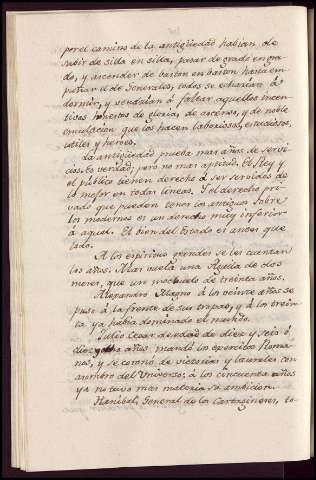 por el camino de la antigüedad habian de
subir de silla en silla, pasar de grado en gra-
do, y ascender de baston en baston hasta em-
puñar el de Generales, todos se echarian á
dormir, y vendrian á faltar aquellos incen-
tivos honestos de gloria, de ascenso, y de noble
emulacion que los hacen laboriosos, estudiosos,
utiles y heroes.
La antigüedad prueba mas años de servi-
cios. Es verdad; pero no mas aptitud. El Rey y
el público tienen derecho á ser servidos de
lo mejor en todas lineas. Y el derecho pri-
vado que pueden tener los antiguos sobre
los modernos es un derecho muy inferior
á aquel. El bien del Estado es antes que
todo.
Á los espiritus grandes no se les cuentan
los años. Mas vuela una Aguila de dos
meses, que un mochuelo de treinta años.
Alexandro Magno á los veinte años se
puso á la frente de sus tropas, y á los trein-
ta ya habia dominado el mundo.
Julio Cesar desde de diez y seis ó
diez y ocho años mandó los exercitos Roma-
nos, y se coronó de victorias y laureles con
asombro del Universo: á los cincuenta años
ya no tuvo mas materia su ambicion.
Hanibal, General de los Cartagineses, to-